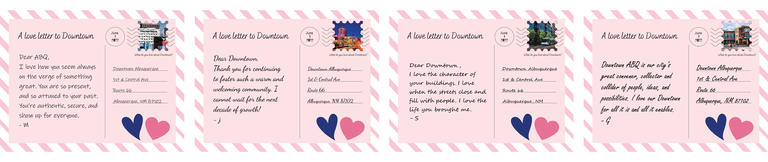 A love letter to Downtown
Dear ABQ,
I love how you seem always
on the verge of something
great. You are so present,
and so attuned to your past.
You're authentic, secure, and
show up for everyone.
- M
Downtown Albuquerque
1st & Central Ave
Route 66
Albuquerque, NM 87102
A love letter to Downtown
Dear Downtown,
Thank you for continuing
to foster such a warm and
welcoming community. I
cannot wait for the next
decade of growth!
- J
Downtown Albuquerque
1st & Central Ave
Route 66
Albuquerque, NM 87102
A love letter to Downtown
Dear Downtown,
I love the character of
your buildings. I love
when the streets close and
fill with people. I love the
life you brought me.
- S
Downtown Albuquerque
1st & Central Ave
Route 66
Albuquerque, NM
A love letter to Downtown
Downtown ABQ is our city's
great convener, collector and
collider of people, ideas, and
possibilities. I love our Downtown
for all it is and all it enables.
- G
Downtown Albuquerque
1st & Central Ave
Route 66
Albuquerque, NM 87102